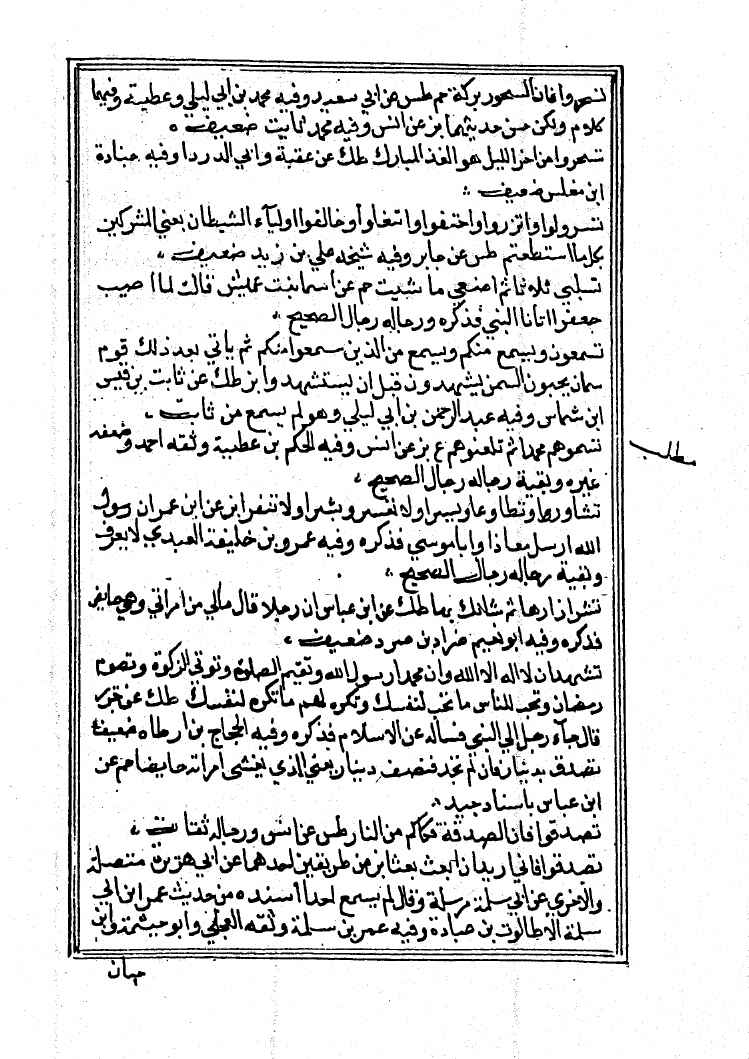 تسحروا فان السحور بركة حم طس عن ابي سعيد وفيه محمد بن ابي ليلي وعطيته وفيهما
كلام ولكن حسن حديثهما بز عن انس وفيه محمد ثابت ضعيف ٥
تسحروا من اخر الليل هو الغذ المبارك طك عن عقبة وابي الدردا وفيه جنادة
ابن مغلس ضعيف
تسرولوا واتزروا واحتفوا وانتعلوا وخالفوا اوليآء الشيطان يعني المشركين
بكل ما استطعتم طس عن جابر وفيه شيخه علي بن زيد ضعيف
تسلبي ثلاثا ثم اصنعي ما شيت حم عن اسما بنت عميش قالت لما اصيب
جعفر اتانا النبي فذكره ورجاله رجال الصحيح
تسمعون ويسمع منكم ويسمع من الذين سمعوا منكم ثم ياتي بعد ذلك قوم
سمان يحبون السمن يشهدون قبل ان يستشهدوا بز طك عن ثابت بن قيس
ابن شماس وفيه عبد الرحمن بن ابي ليلي وهو لم يسمع من ثابت
تسموهم محمدا ثم تلعنوهم ع بز عن انس وفيه الحكم بن عطيية وثقه احمد وضعفه
غيره وبقية رجاله رجال الصحيح
مطلب
تشاورا وتطاوعا ويسرا ولا تعسر وبشرا ولا تنفرا بز عن ابن عمران رسول
الله ارسل معاذا وابا موسي فذكره وفيه عمرو بن خليفة العبدي لا يعرف
وبقية رجاله رجال الصحيح
تشد ازارها ثم شانك بها طك عن ابن عباس ان رجلا قال مالي من امراتي وهي حايض
فذكره وفيه ابو نعيم ضرار بن صرد ضعيف
تشهد ان لا اله الا الله وان محمدا رسول الله وتقيم الصلوة وتوتي الزكوة وتصوم
رمضان وتحب للناس ما تحب لنفسك وتكره لهم ما تكره لنفسك طك عن جرير
قال جآء رجل الي النبي فساله عن الاسلام فذكره وفيه الحجاج بن ارطاه ضعيف
تصدق بدينار فان لم تجد فنصف دينار يعني الذي يغشى امراته حايضا حم عن
ابن عباس باسناد جيد
تصدقوا فان الصدقة فكاكم من النار طس عن انس ورجاله ثقات
تصدقوا فاني اريد ان ابعث بعثا بز من طريقين احدهما عن ابي هريرة متصلة
والاخري عن ابي سلمة مرسلة وقال لم يسمع احدا اسنده من حديث عمر ابن ابي
سلمة الا طالوت بن عبادة وفيه عمر بن سلمة وثقه العجلي وابو خيثمة وابن
حبان